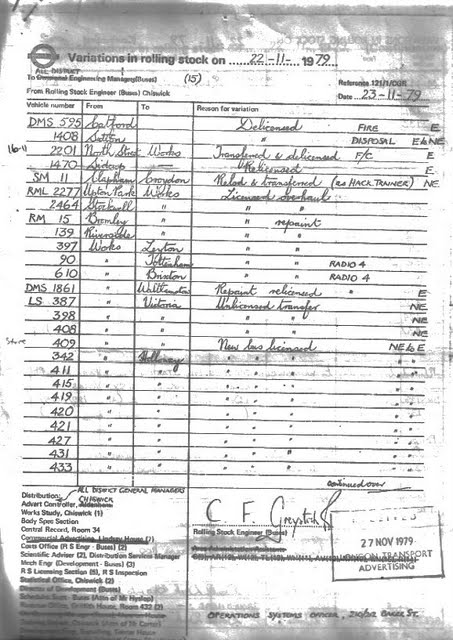 Variations in rolling stock on 22-11- 1979
ALL DISTRICT
To Divisional Engineering Manager (Buses) (15)
Reference 121/1/CGR
From Rolling Stock Engineer (Buses) Chiswick
Date 23-11-79
Vehicle number From To Reason for variation
DMS 595 Catford Delicensed FIRE E
1408 Sutton " DISPOSAL E to NE
16-11 2201 North Street Works Transferred & delicensed F/C E
1470 Sidcup Relicensed E
SM 11 Clapham Croydon Relcd & transferred (as HACK TRAINER) NE
RML 2277 Upton Park Works Licensed overhaul
2464 Stockwell " " "
RM 15 Bromley " " repaint
139 Riverside " " "
397 Works Leyton " "
90 " Tottenham " " RADIO 4
610 " Brixton " " RADIO 4
DMS 1861 " Walthamstow Repaint relicensed " E
LS 387 " Victoria Unlicensed transfer NE
398 " " " " NE
408 " " " " NE
Store 409 " " New bus licensed NE to E
342 " Holloway " " " " "
411 " " " " " " "
415 " " " " " " "
419 " " " " " " "
420 " " " " " " "
421 " " " " " " "
427 " " " " " " "
431 " " " " " " "
433 " " " " " " "
continued over
Distribution: ALL DISTRICT GENERAL MANAGERS
CHISWICK
Advert Controller,
Works Study, Chiswick (1)
Body Spec Section
Central Record, Room 34
Commercial Advertising, Lindsey House
Coats Office (R S Engr - Buses) (2)
Scientific Adviser (2), Distribution Services Manager
Mech Engr (Development - Buses) (3)
R S Licensing Section (5), R S Inspection
Statistical Office, Chiswick (2)
Director of Development (Buses)
Schedules Supt. - Buses (Attn of Mr Hyslop)
Revenue Office, Griffith House, Room 432 (2)
C F
Rolling Stock Engineer (Buses)
27 NOV 1979
LONDON TRANSPORT
ADVERTISING
OPERATIONS SYSTEMS OFFICER, 210/212 BAKER ST.